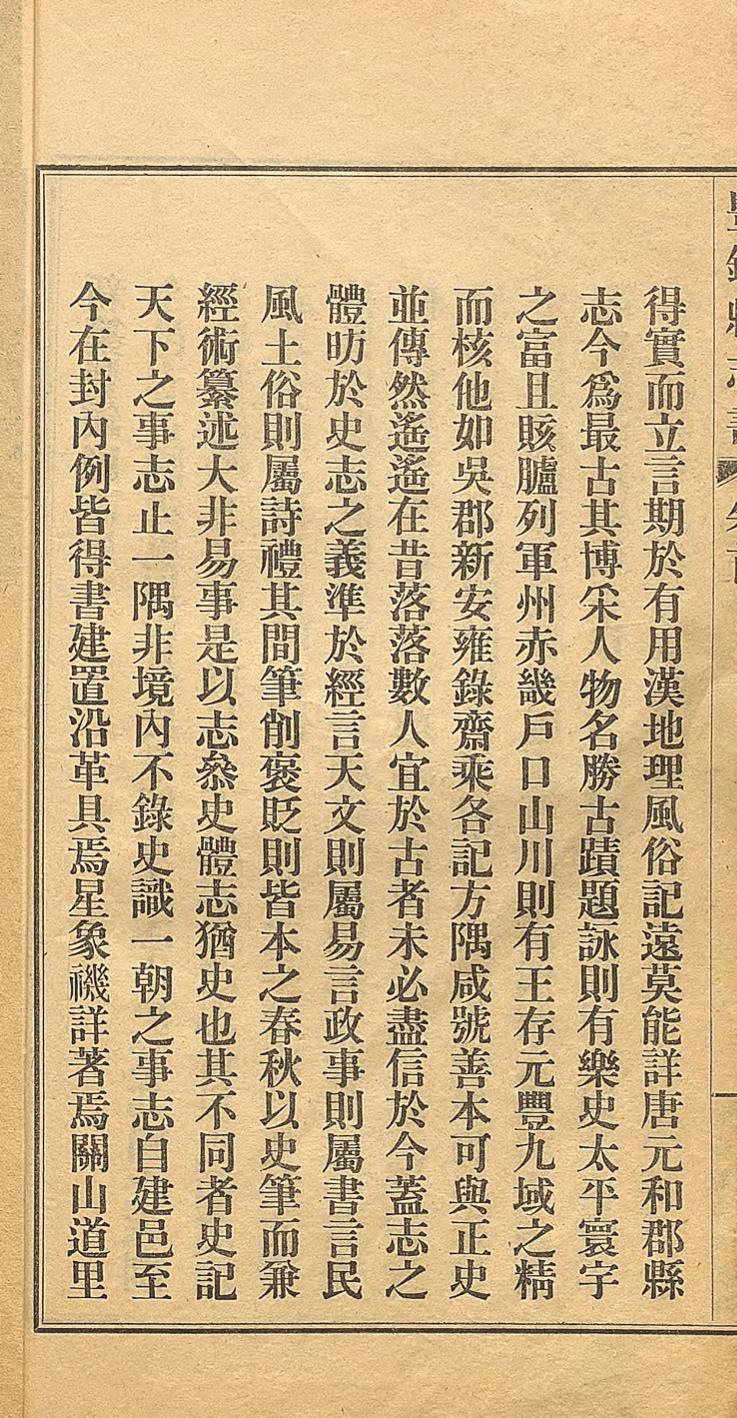 得實而立言期於有用漢地理風俗記遠莫能詳唐元和郡縣
志今爲最古其博采人物名勝古蹟題詠則有樂史太平寰宇
之富且賅臚列軍州赤畿戶口山川則有王存元豐九域之精
而核他如吳郡新安雍錄齋乘各記方隅咸號善本可與正史
並傳然遙遙在昔落落數人宜於古者未必盡信於今蓋志之
體昉於史志之義準於經言天文則屬易言政事則屬書言民
風土俗則屬詩禮其間筆削褒貶則皆本之春秋以史筆而兼
經術纂述大非易事是以志叅史體志猶史也其不同者史記
天下之事志止一隅非境內不錄史識一朝之事志自建邑至
今在封內例皆得書建置沿革具焉星象禨詳著焉關山道里